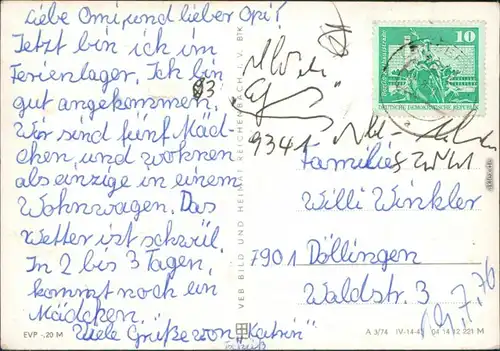 Liebe Omi, und lieber Opi!
Jetzt bin ich im
Ferienlager. Ich bin
gut angekommen.
Wir sind fünf Mäd-
chen, und wohnen
als einzige in einem
Wohnwagen. Das
Wetter ist schwül.
In 2 bis 3 Tagen,
kommt noch ein
Mädchen.
Viele Grüße von "Katrin"
VEB BILD UND HEIMAT REICHENBACH I. V. BTK
10
DEUTSCHE DEMOKRATISCHE REPUBLIK
9341
Familie
Willi Winkler
7901 Döllingen
Waldstr. 3
19.7.76
EVP -,20 M
A 3/74 IV-14-45 04 14 12 221 M